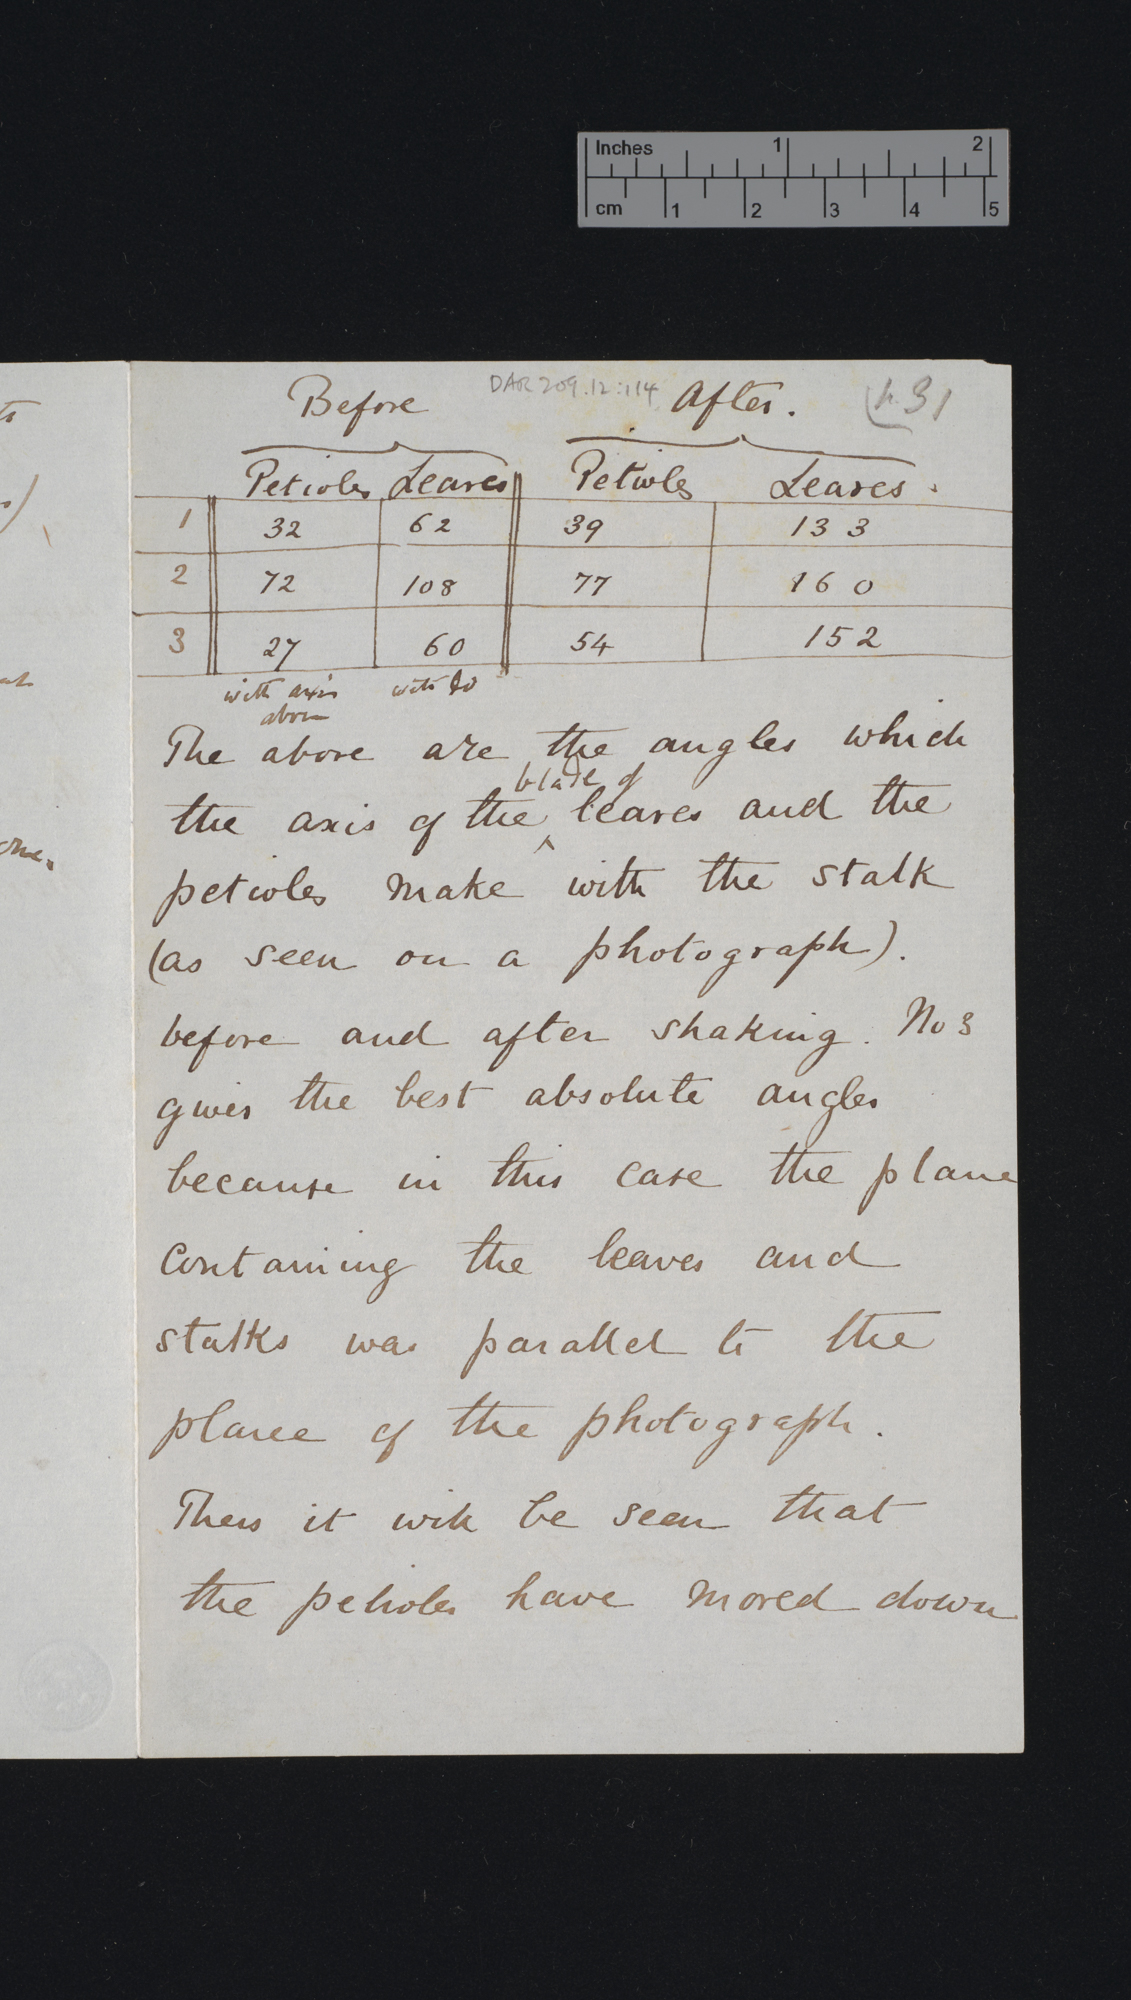 Inches 1 2
cm 1 2 3 4 5
DAR 209.12:114
Before After.
Petioles Leaves Petioles Leaves.
1 32 62 39 133
2 72 108 77 160
3 27 60 54 152
with axis with do
above
The above are the angles which
blade of
the axis of the ^ leaves and the
petioles make with the stalk
(as seen on a photograph).
before and after shaking. No 3
gives the best absolute angles
because in this case the plane
containing the leaves and
stalks was parallel to the
plane of the photograph.
Thus it will be seen that
the petioles have moved down